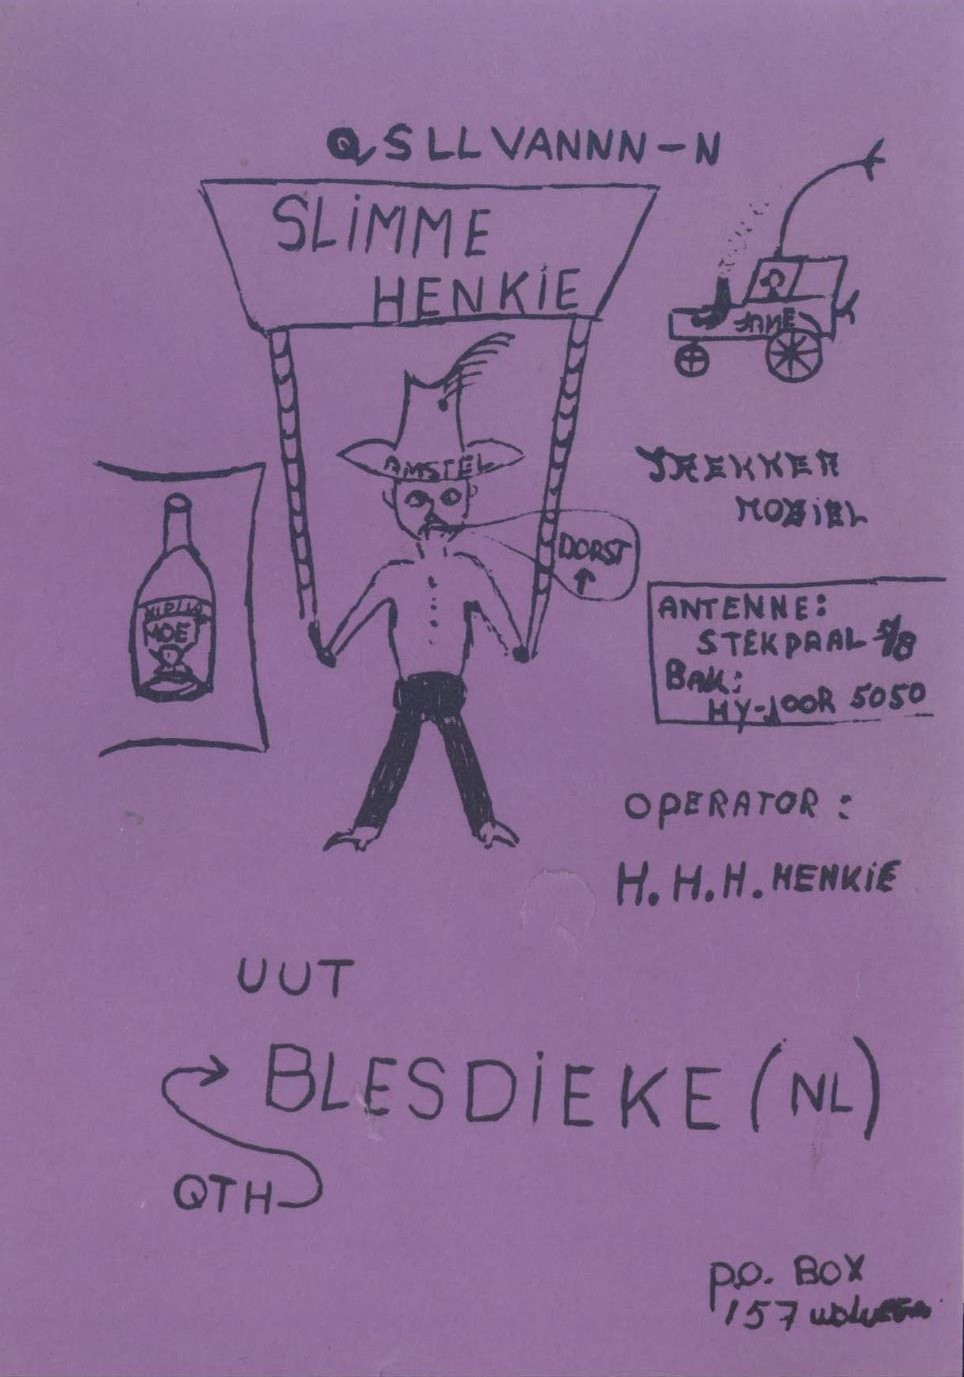 QSLL VANNN-N
SLiMME
HENKiE
AMSTEL
DORST
TREKKER
MOBiEL
MOET
ANTENNE:
STEKPAAL 5/8
BAK:
HY-JOOR 5050
OPERATOR:
H.H.H. HENKiE
UUT
BLESDiEKE (NL)
QTH
P.O. BOX
157 WOLVEGA